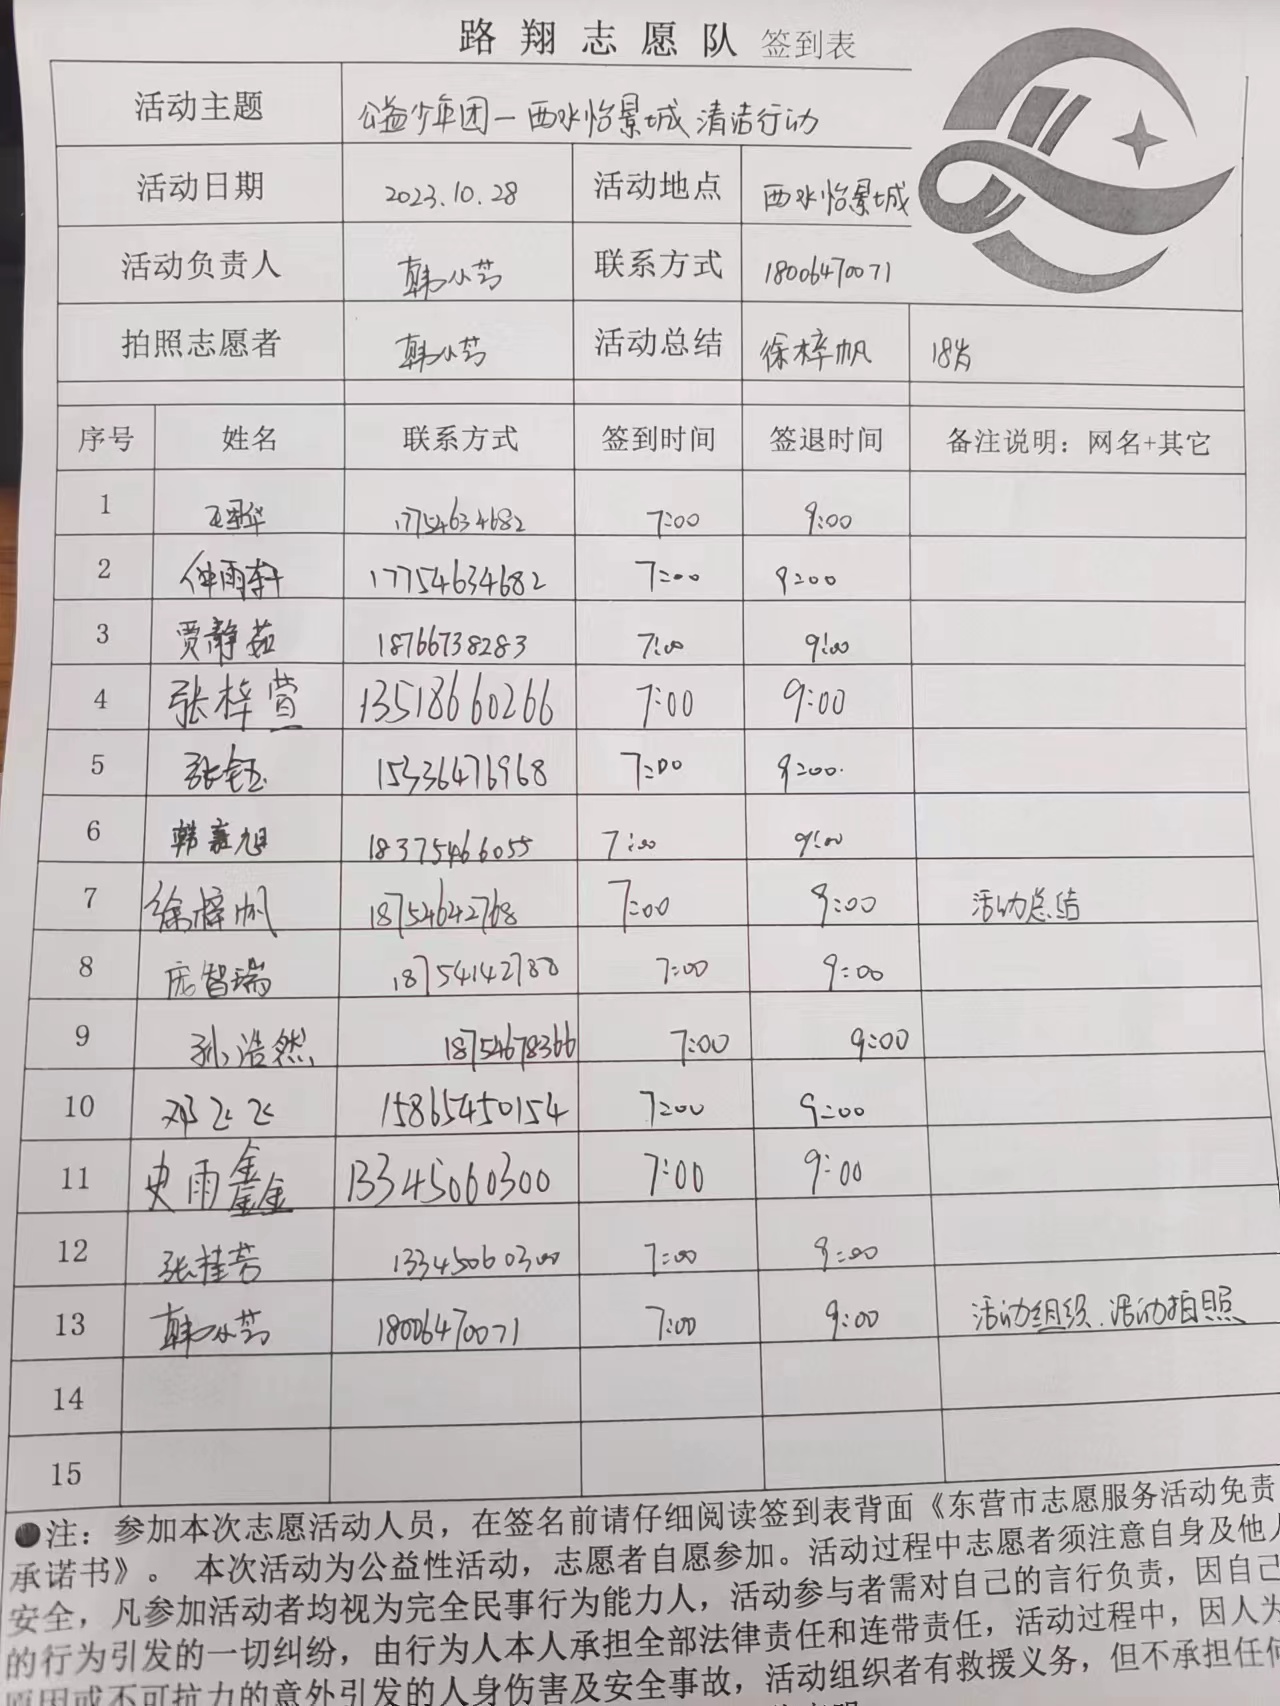 路翔志愿队 签到表
活动主题 公益少年团一西水怡景城清洁行动
活动日期 2023.10.28 活动地点 西水怡景城
活动负责人 韩小芳 联系方式 18006470071
拍照志愿者 韩小芳 活动总结 徐梓帆 18岁
序号 姓名 联系方式 签到时间 签退时间 备注说明：网名+其它
1 17754634682 7:00 9:00
2 仲雨轩 17754634682 7:00 9:00
3 贾静茹 18766738283 7:00 9:00
4 张梓萱 13518660266 7:00 9:00
5 张钰 15336476968 7:00 9:00
6 韩嘉旭 18375466055 7:00 9:00
7 徐梓帆 18754642768 7:00 9:00 活动总结
8 庞智瑞 18754142788 7:00 9:00
9 孙浩然 18754678366 7:00 9:00
10 邓飞飞 15865450154 7:00 9:00
11 史雨鑫 13345060300 7:00 9:00
12 张桂芳 13345060300 7:00 9:00
13 韩小芳 18006470071 7:00 9:00 活动组织.活动拍照
14
15
●注：参加本次志愿活动人员，在签名前请仔细阅读签到表背面《东营市志愿服务活动免责
承诺书》。 本次活动为公益性活动，志愿者自愿参加。活动过程中志愿者须注意自身及他人
安全，凡参加活动者均视为完全民事行为能力人，活动参与者需对自己的言行负责，因自己
的行为引发的一切纠纷，由行为人本人承担全部法律责任和连带责任，活动过程中，因人为
原因或不可抗力的意外引发的人身伤害及安全事故，活动组织者有救援义务，但不承担任何